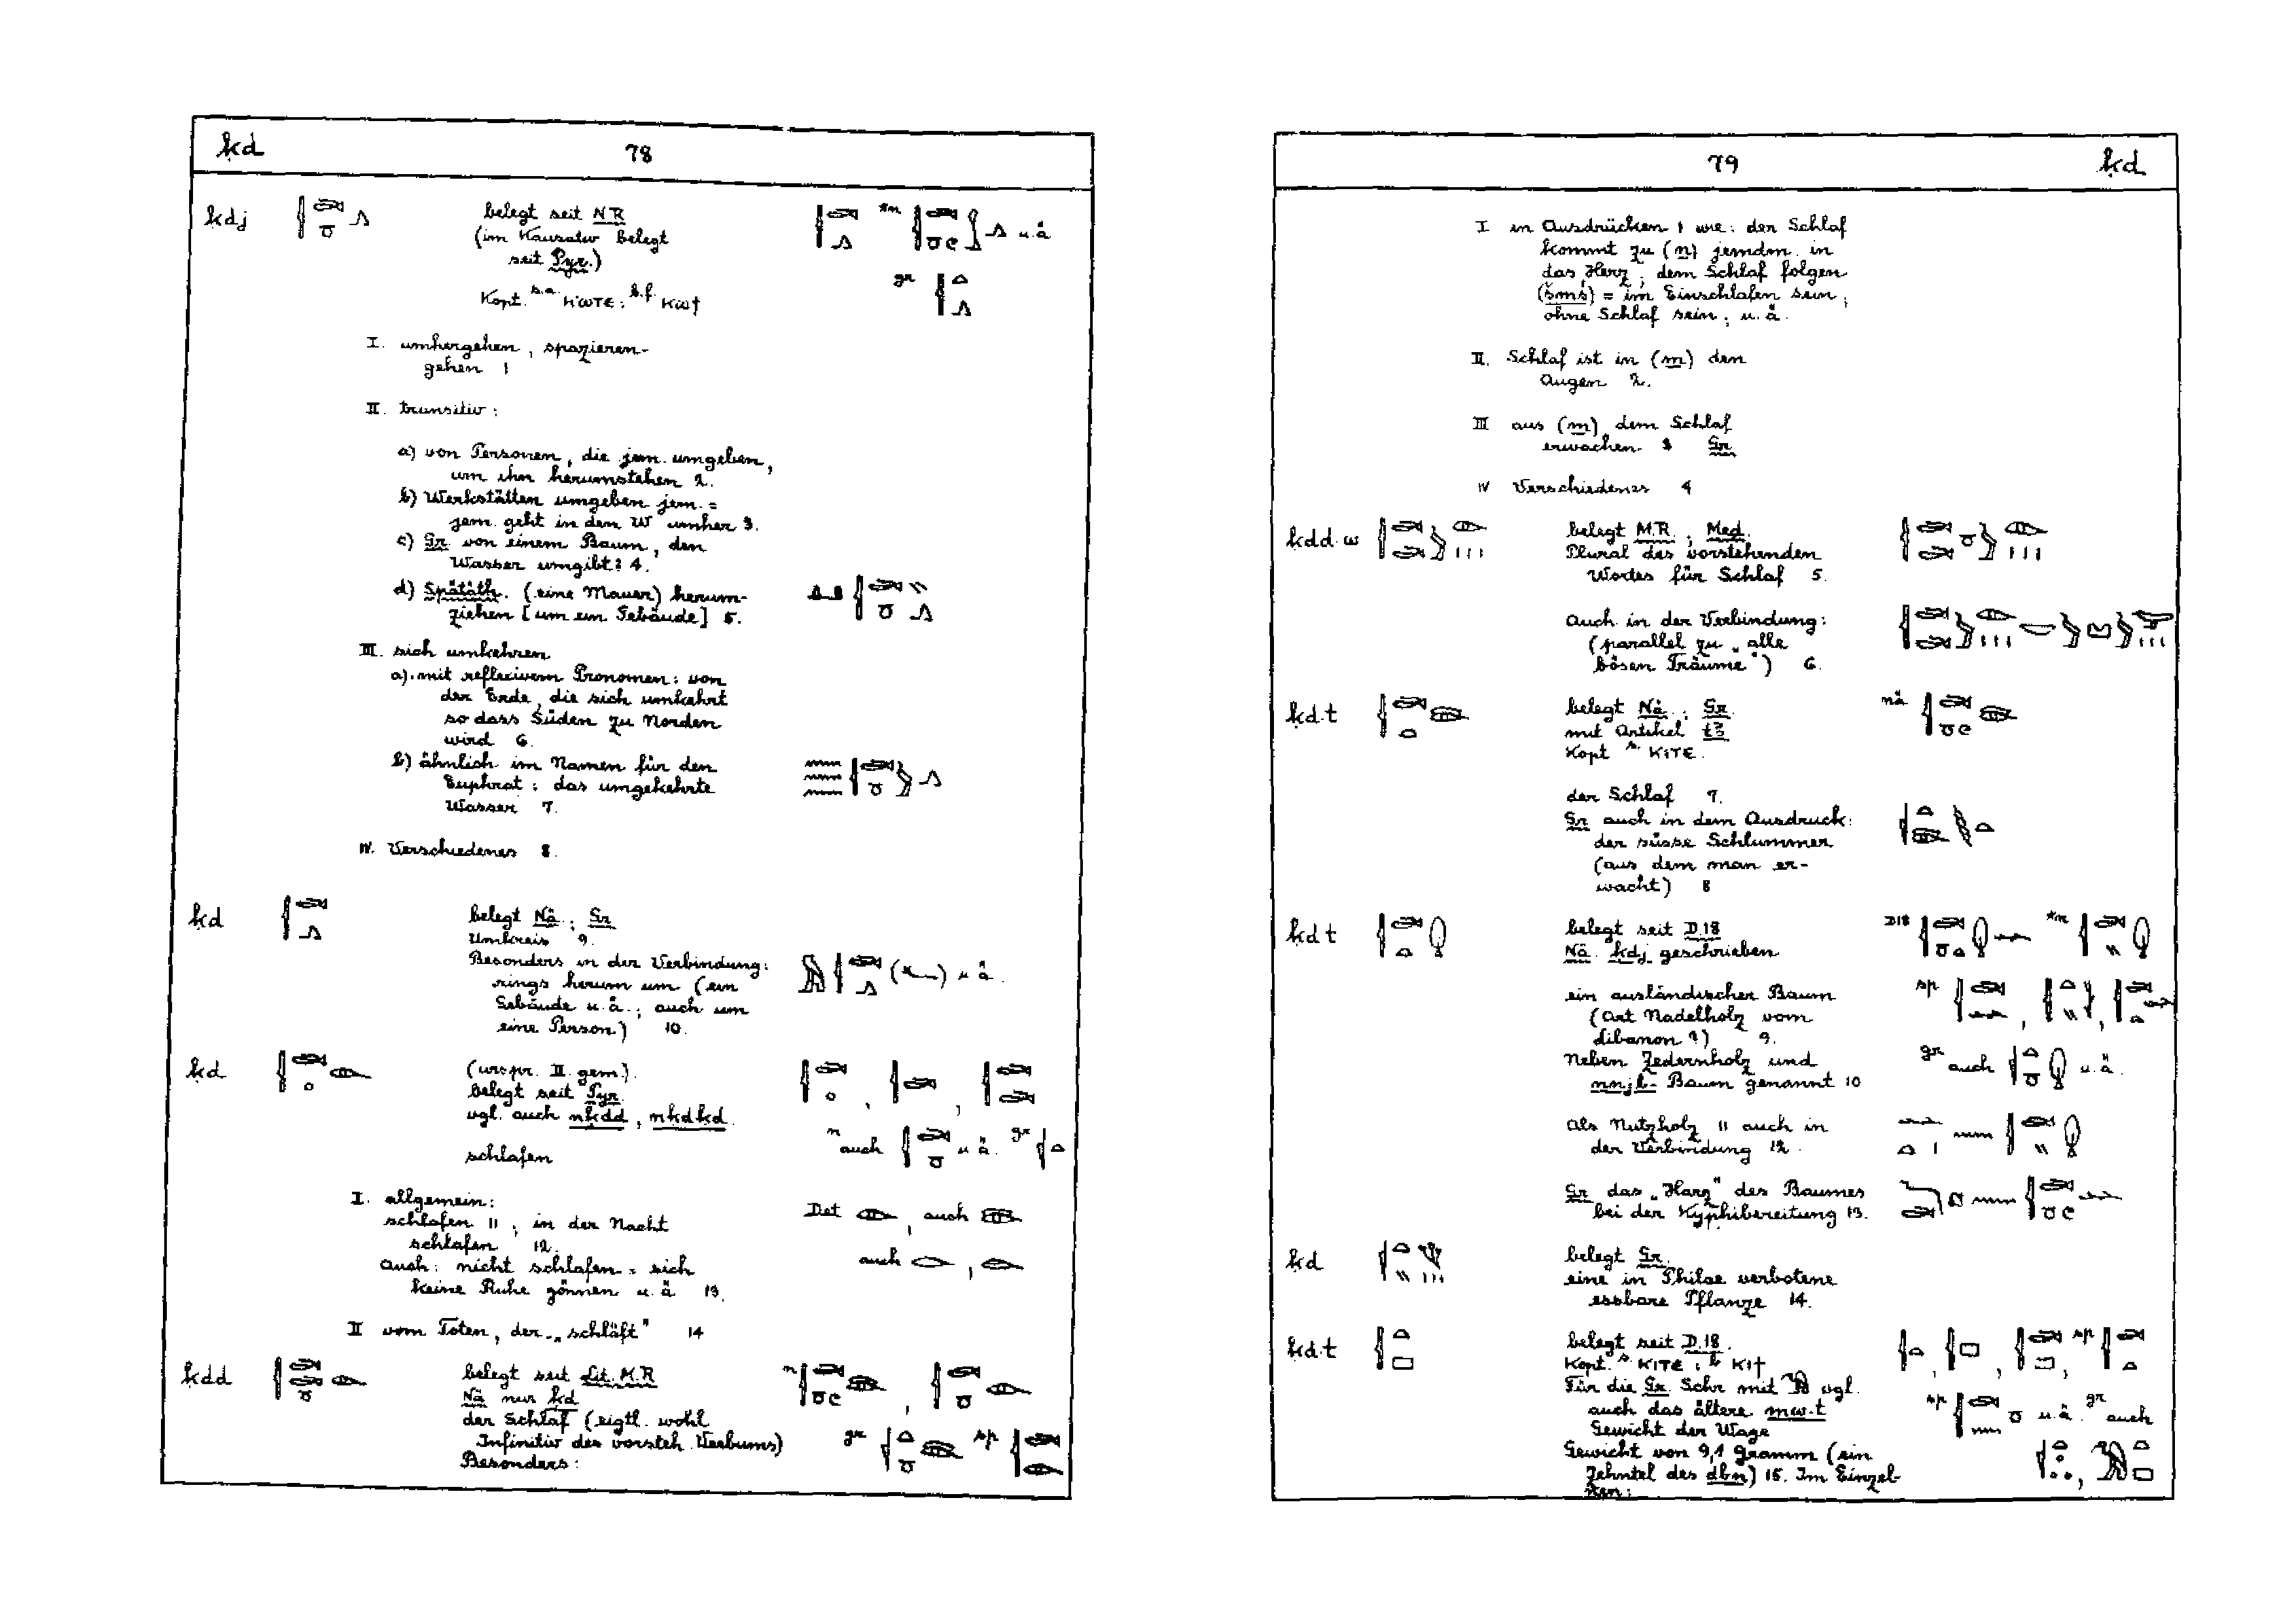 ḳd 78
ḳdj belegt seit NR
(im Kausativ belegt
seit Pyr.)
u.ä.
gr
Kopt. s.a. ⲕⲱⲧⲉ; b.f. ⲕⲱϯ
I. umhergehen, spazieren-
gehen 1
II. transitiv:
a) von Personen, die jem. umgeben,
um ihn herumstehen 2.
b) Werkstätten umgeben jem. =
jem. geht in den W umher 3.
c) Gr. von einem Baum, den
Wasser umgibt? 4.
d) Spätäth. (eine Mauer) herum-
ziehen [um ein Gebäude] 5.
III. sich umkehren
a) mit reflexivem Pronomen: von
der Erde, die sich umkehrt
so dass Süden zu Norden
wird 6.
b) ähnlich im Namen für den
Euphrat: das umgekehrte
Wasser 7.
IV. Verschiedenes 8.
ḳd belegt Nä; Gr
Umkreis 9.
Besonders in der Verbindung: u ä.
rings herum um (ein
Gebäude u.ä.; auch um
eine Person) 10.
ḳd (urspr. II. gem.).
belegt seit Pyr.
vgl. auch nḳdd, nḳdḳd.
n auch u ä. gr
schlafen
I. allgemein:
schlafen 11; in der Nacht
schlafen 12.
Det , auch
auch: nicht schlafen = sich
keine Ruhe gönnen u. ä 13.
auch ,
II vom Toten, der „schläft" 14
ḳdd belegt seit Lit. M.R
Nä nur ḳd
der Schlaf (eigtl. wohl
Infinitiv des vorsteh. Verbums)
gr sp
Besonders:
79 ḳd
I in Ausdrücken 1 wie: der Schlaf
kommt zu (n) jemdm. in
das Herz; dem Schlaf folgen
(šmś) = im Einschlafen sein;
ohne Schlaf sein; u. ä.
II. Schlaf ist in (m) den
Augen 2.
III aus (m) dem Schlaf
erwachen 3 Gr
IV Verschiedenes 4
ḳdd.w belegt M.R.; Med.
Plural des vorstehenden
Wortes für Schlaf 5.
Auch in der Verbindung:
(parallel zu „alle
bösen Träume") 6.
ḳd.t belegt Nä.; Gr. nä
mit Artikel t3
Kopt s. ⲕⲓⲧⲉ.
der Schlaf 7.
Gr auch in dem Ausdruck:
der süsse Schlummer
(aus dem man er-
wacht) 8
ḳd.t belegt seit D.18 D18
Nä. ḳdj geschrieben
ein ausländischer Baum sp
(Art Nadelholz vom
Libanon?) 9.
Neben Zedernholz und gr auch u. ä.
nnjb- Baum genannt 10
Als Nutzholz 11 auch in
der Verbindung 12.
Gr das „Harz" des Baumes
bei der Kyphibereitung 13.
ḳd belegt Gr.
eine in Philae verbotene
essbare Pflanze 14.
ḳd.t belegt seit D.18. sp
Kopt. s. ⲕⲓⲧⲉ; b ⲕⲓϯ
Für die Gr. Schr mit vgl.
auch das ältere mw.t sp u. ä. gr auch
Gewicht der Wage
Gewicht von 9,1 Gramm (ein
Zehntel des dbn) 15. Im Einzel-
nen: